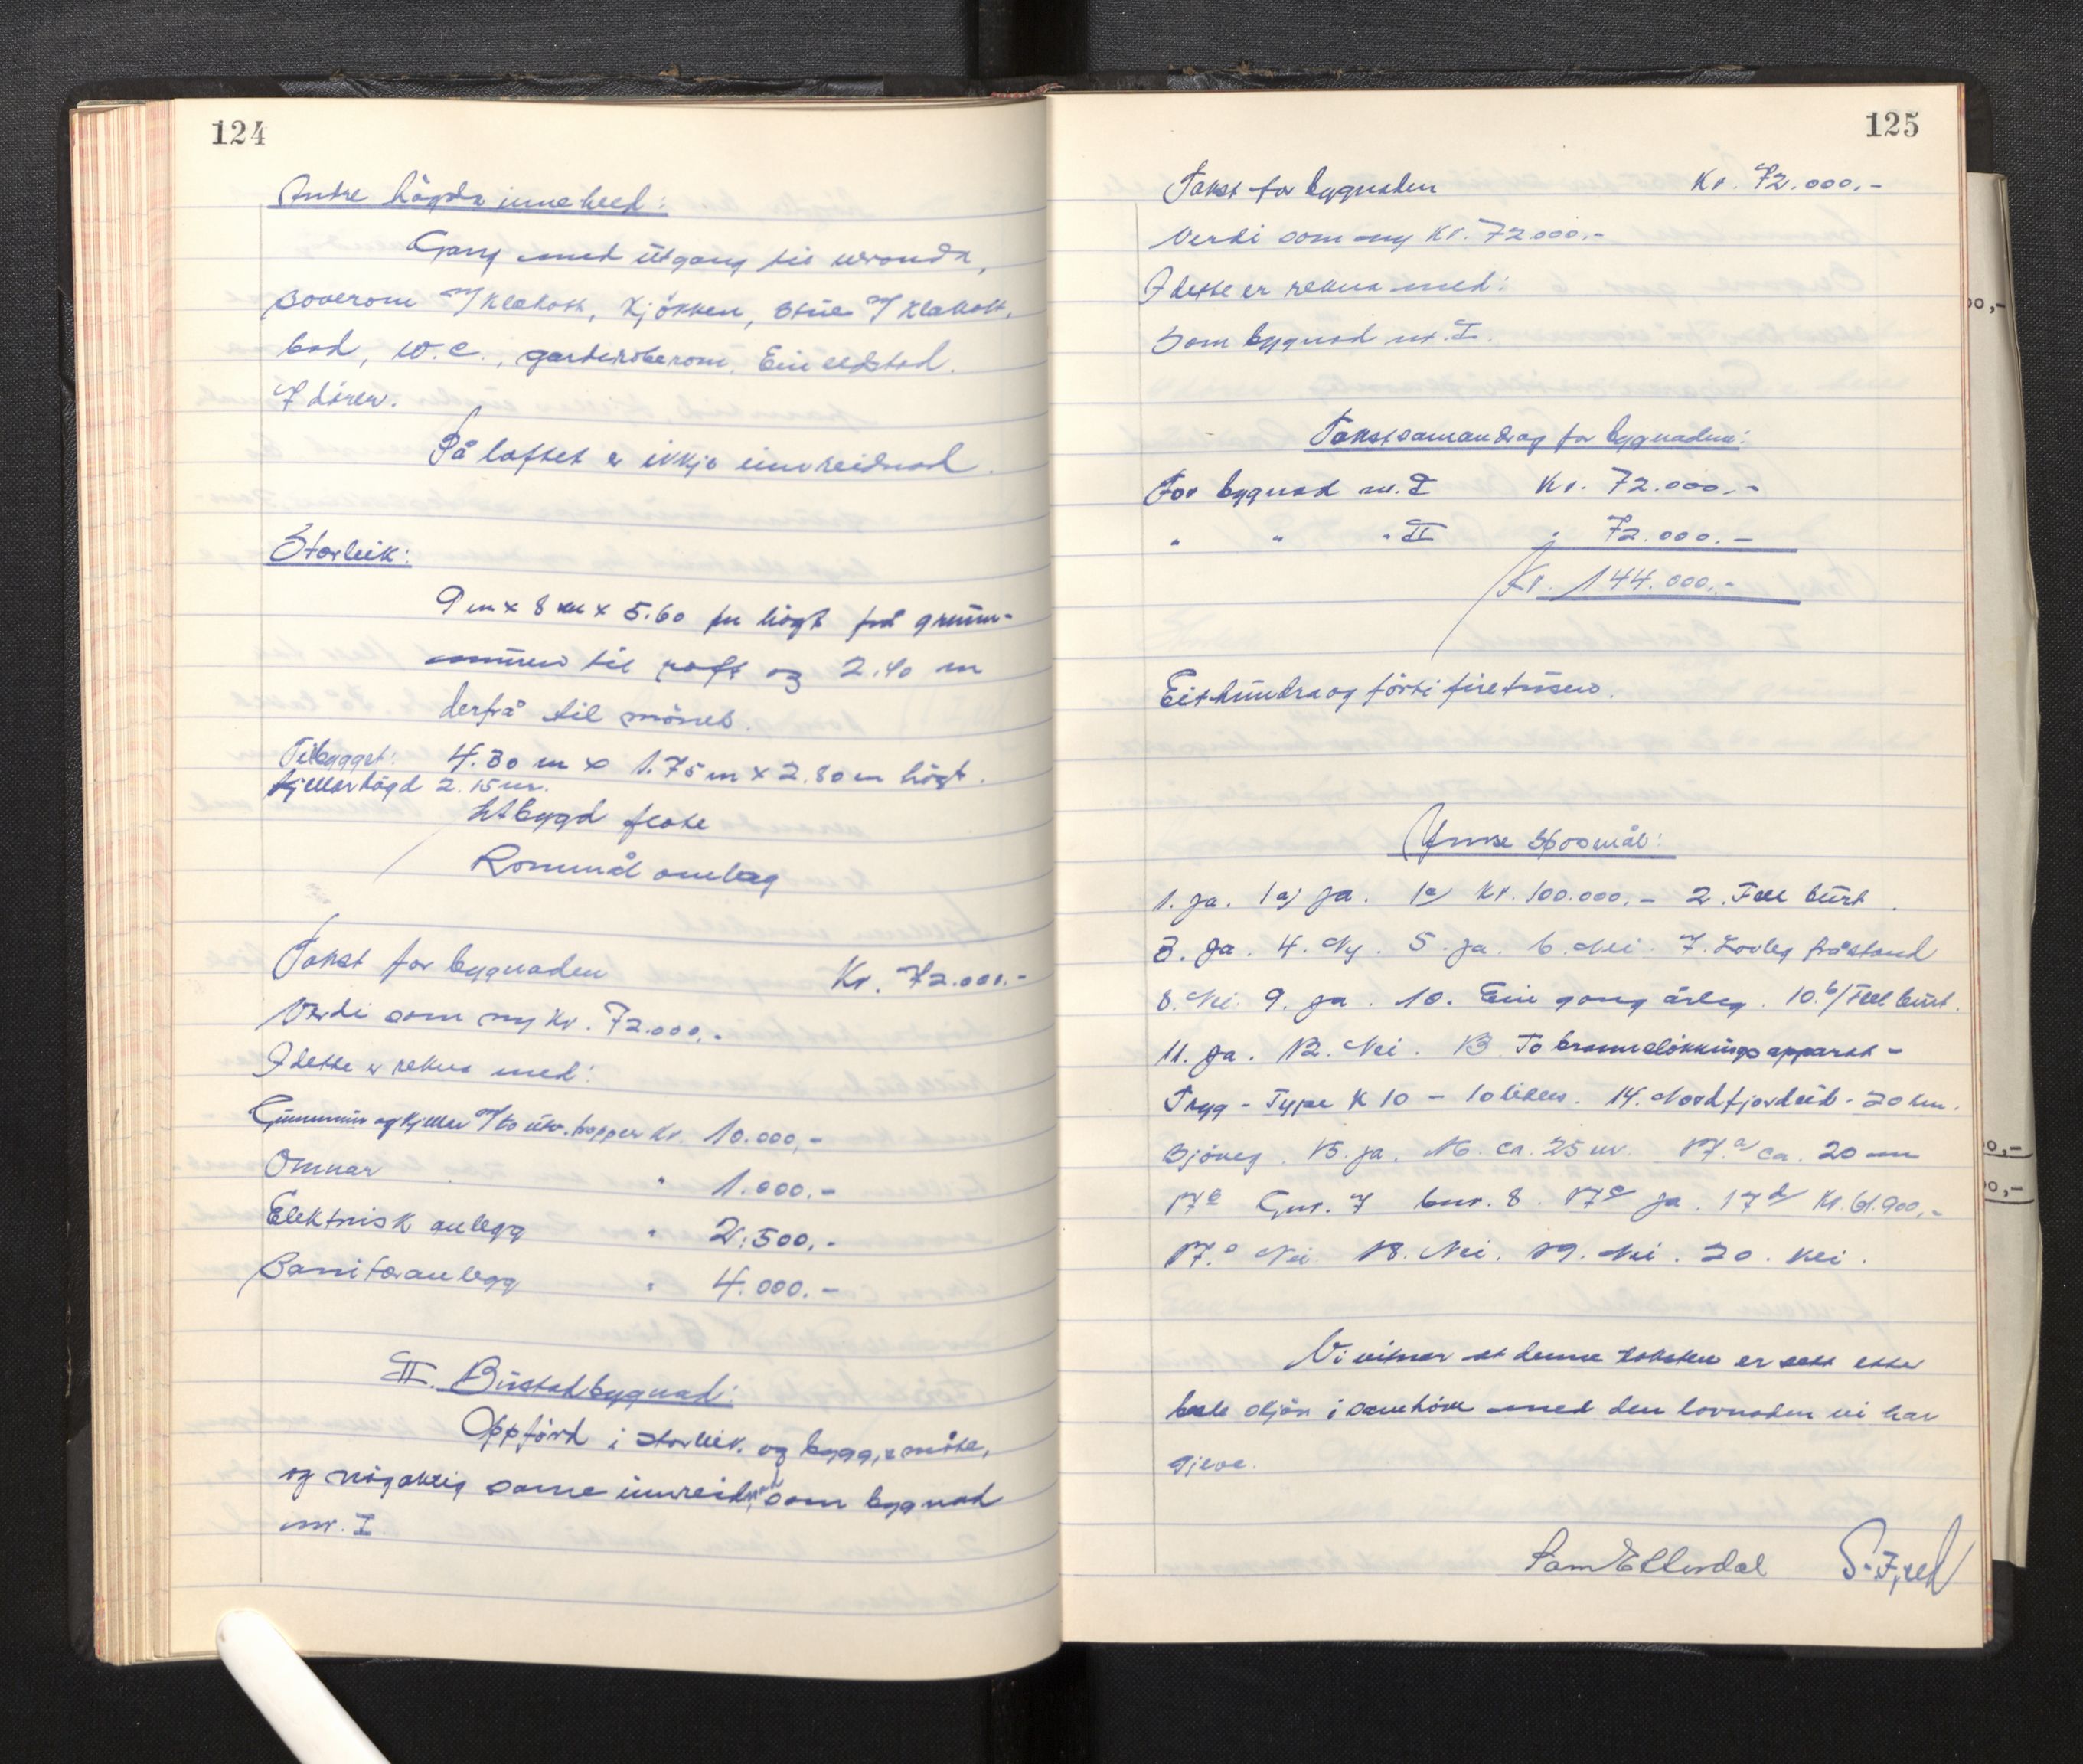 124
Andre högda inneheld:
Gang med utgang til veranda,
soverom m/ klekott, kjökken, stue m/ klekott,
bad, W.C., garderoberom. Ein eldstad.
7 dörer.
På loftet er ikkje innreidnad.
Storleik:
9 m x 8 m x 5.60 m högt frå grunn-
muren til raft og 2.40 m
derfrå til mönet.
Tilbygget: 4.30 m x 1.75 m x 2.80 m högt.
Kjellarhögd 2.15 m.
Utbygd flate
Rommål omlag
Takst for bygnaden Kr. 72.000.-
Verdi som ny Kr. 72.000.-
I dette er rekna med:
Grunnmur og kjeller m/ to utv. trapper Kr. 10.000,-
Omnar " 1.000.-
Elektrisk anlegg " 2.500.-
Sanitæranlegg " 4.000.-
II. Bustadbygnad:
Oppförd i storleik og byggjemåte,
og nögaktig same innreidnad som bygnad
nr. I
125
Takst for bygnaden Kr. 72.000.-
Verdi som ny Kr. 72.000.-
I dette er rekna med:
Som bygnad nr. I.
Takstsamandrag for bygnadene:
For bygnad nr. I Kr. 72.000.-
" " " II " 72.000.-
Kr. 144.000.-
Eithundraogförtifiretusen.
Ymse spörsmål:
1. Ja. 1a) Ja. 1c) Kr. 100.000.- 2. Fell burt.
3. Ja. 4. Ny. 5. Ja. 6. Nei. 7. Lovleg fråstand
8. Nei. 9. Ja. 10. Ein gong årleg. 10.b/ Fell burt.
11. Ja. 12. Nei. 13. To brannslökkingsapparat -
Trygg - Type K 10 - 10 liters. 14. Nordfjordeid - 20 km.
Sjöveg. 15. Ja. 16. Ca. 25 m. 17.a Ca. 20 m
17b Gnr. 7 bnr. 8. 17c Ja. 17d Kr. 61.900,-
17.e Nei 18. Nei. 19. Nei. 20. Nei.
Vi vitnar at denne taksten er sett etter
beste skjön i samhöve med den lovnaden vi har
gjeve.